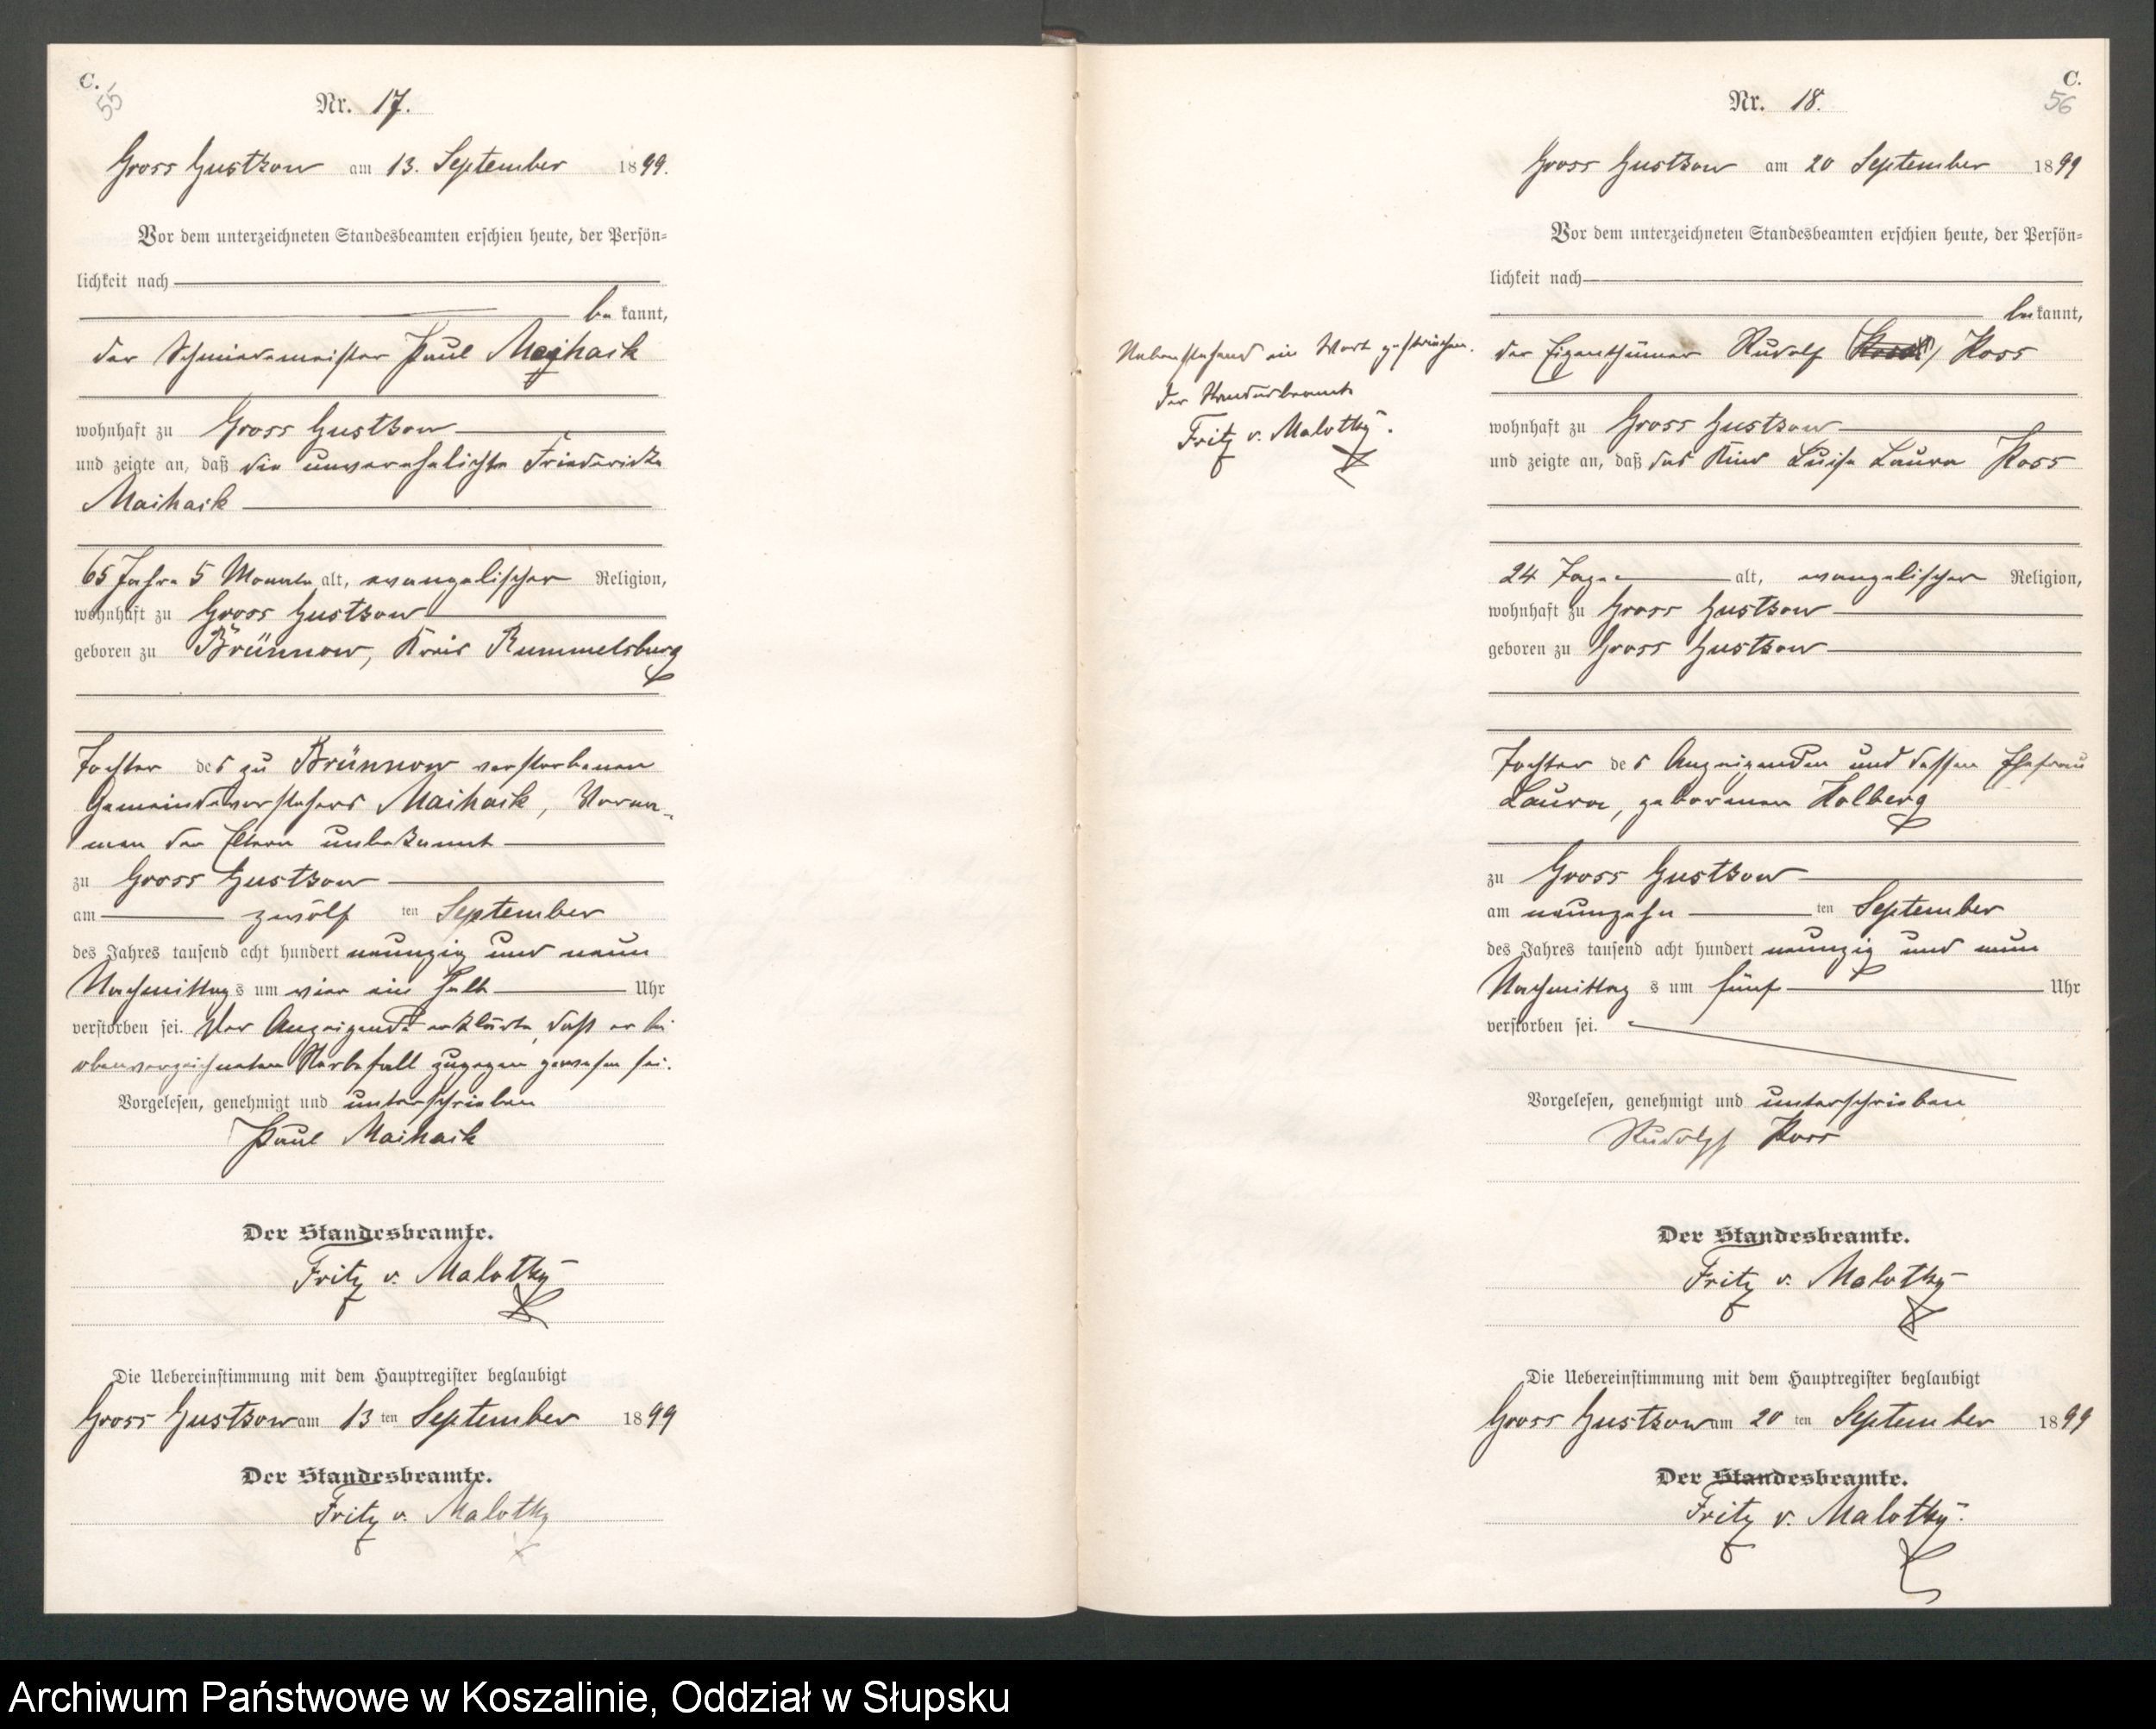 C.
55
Nr. 17.
Gross Gustkow am 13. September 1899.
Vor dem unterzeichneten Standesbeamten erschien heute, der Persön-
lichkeit nach
be kannt,
der Schmiedemeister Paul Maihack
wohnhaft zu Gross Gustkow
und zeigte an, daß die unverehelichte Friedericke
Maihack
65 Jahre 5 Monate alt, evangelischer Religion,
wohnhaft zu Gross Gustkow
geboren zu Brünnow, Kreis Rummelsburg
Tochter des zu Brünnow verstorbenen
Gemeindevorstehers Maihack, Vorna-
men der Eltern unbekannt
zu Gross Gustkow
am zwölf ten September
des Jahres tausend acht hundert neunzig und neun
Nachmittags um vier ein halb Uhr
verstorben sei. Der Anzeigende erklärte, daß er bei
obenverzeichneten Sterbefall zugegen gewesen sei.
Vorgelesen, genehmigt und unterschrieben
Paul Maihack
Der Standesbeamte.
Fritz v. Malotky
Die Uebereinstimmung mit dem Hauptregister beglaubigt
Gross Gustkow am 13 ten September 1899
Der Standesbeamte.
Fritz v. Malotky
C.
56
Nr. 18.
Gross Gustkow am 20 September 1899
Vor dem unterzeichneten Standesbeamten erschien heute, der Persön-
lichkeit nach
be kannt,
der Eigenthümer Rudolf Koss
wohnhaft zu Gross Gustkow
und zeigte an, daß das Kind Luise Laura Koss
24 Tage alt, evangelischer Religion,
wohnhaft zu Gross Gustkow
geboren zu Gross Gustkow
Tochter des Anzeigenden und dessen Ehefrau
Laura, geborenen Kolberg
zu Gross Gustkow
am neunzehn ten September
des Jahres tausend acht hundert neunzig und neun
Nachmittag s um fünf Uhr
verstorben sei.
Vorgelesen, genehmigt und unterschrieben
Rudolf Koss
Der Standesbeamte.
Fritz v. Malotky
Die Uebereinstimmung mit dem Hauptregister beglaubigt
Gross Gustkow am 20 ten September 1899
Der Standesbeamte.
Fritz v. Malotky.
Nebenstehend ein Wort gestrichen.
Der Standesbeamte
Fritz v. Malotky.
Archiwum Państwowe w Koszalinie, Oddział w Słupsku